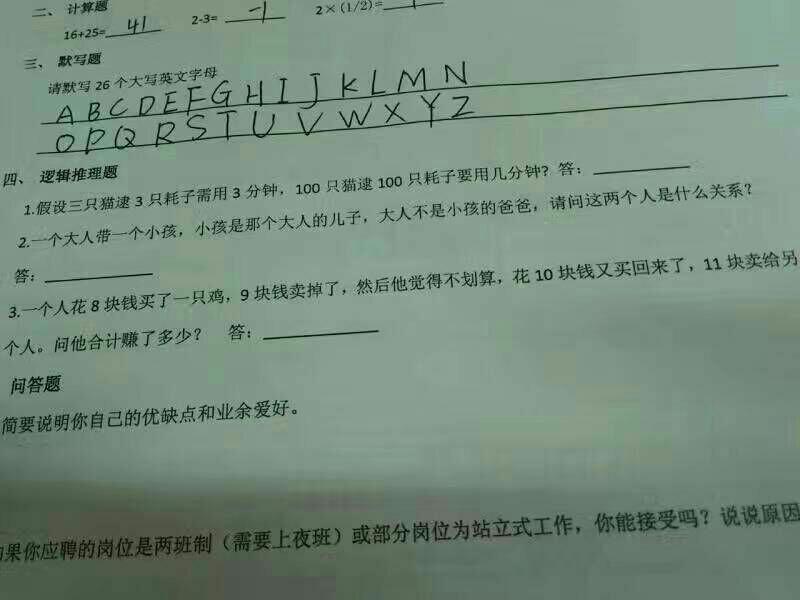 二、 计算题
16+25=41 2-3= -1 2×(1/2)=1
三、 默写题
请默写 26 个大写英文字母
A B C D E F G H I J K L M N
O P Q R S T U V W X Y Z
四、 逻辑推理题
1.假设三只猫逮 3 只耗子需用 3 分钟，100 只猫逮 100 只耗子要用几分钟？答：
2.一个大人带一个小孩，小孩是那个大人的儿子，大人不是小孩的爸爸，请问这两个人是什么关系？
答：
3.一个人花 8 块钱买了一只鸡，9 块钱卖掉了，然后他觉得不划算，花 10 块钱又买回来了，11 块卖给另
个人。问他合计赚了多少？ 答：
问答题
简要说明你自己的优缺点和业余爱好。
果你应聘的岗位是两班制（需要上夜班）或部分岗位为站立式工作，你能接受吗？说说原因